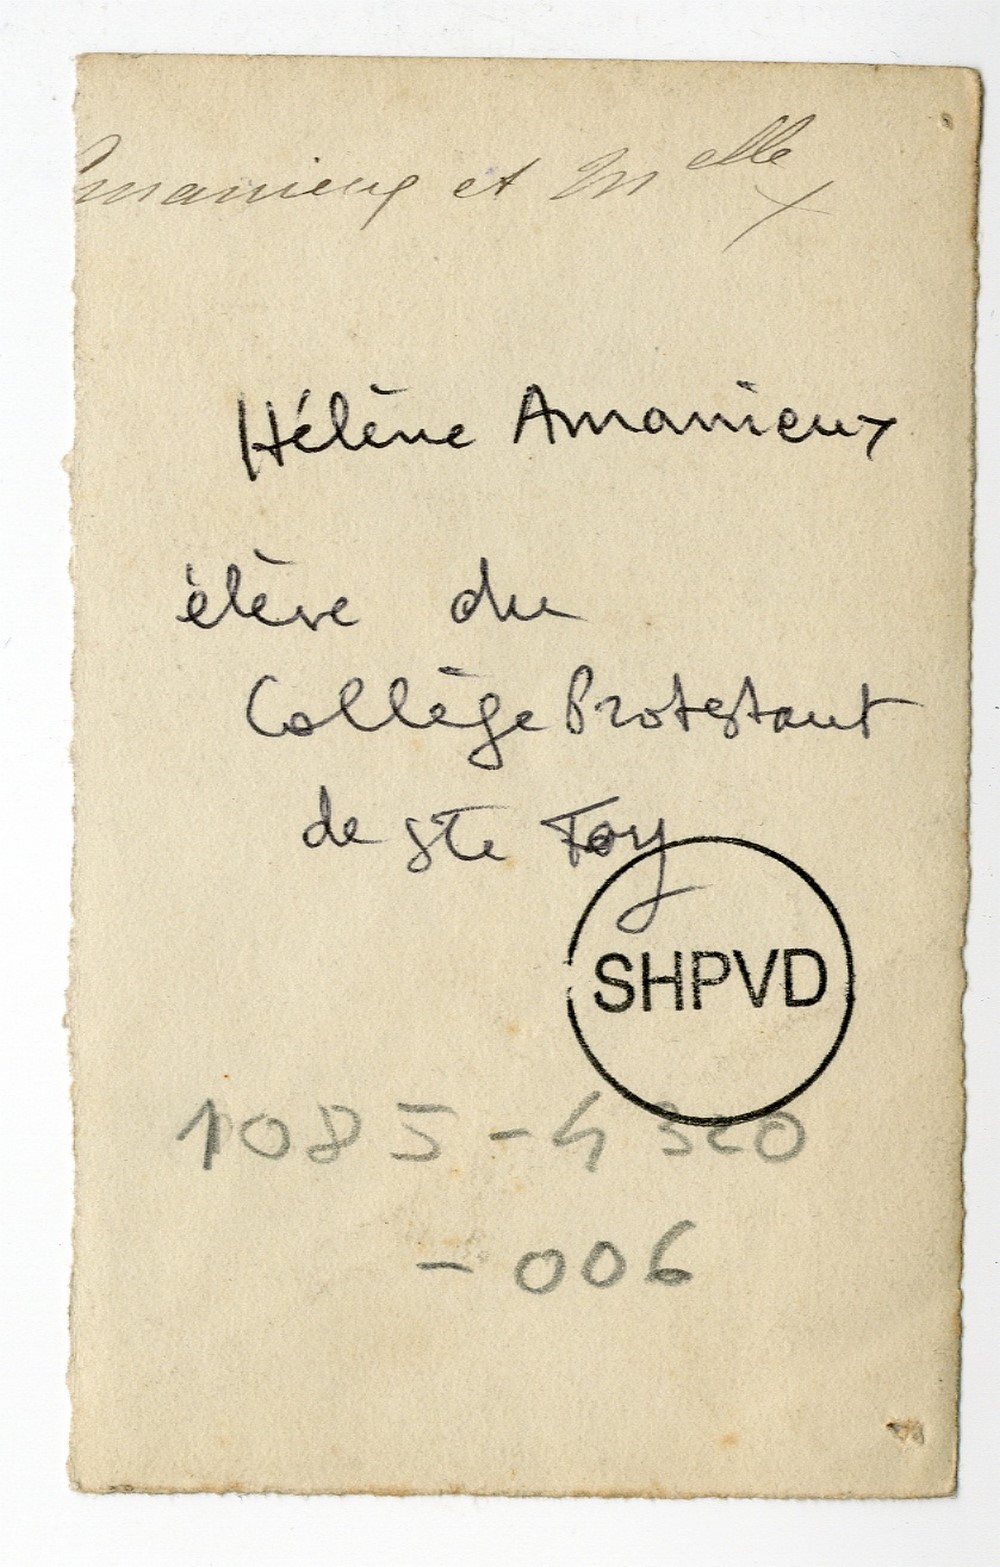 Amanieux et Melle X
Hélène Amanieux
élève du
Collège Protestant
de Ste Foy
SHPVD
1085-4320
-006